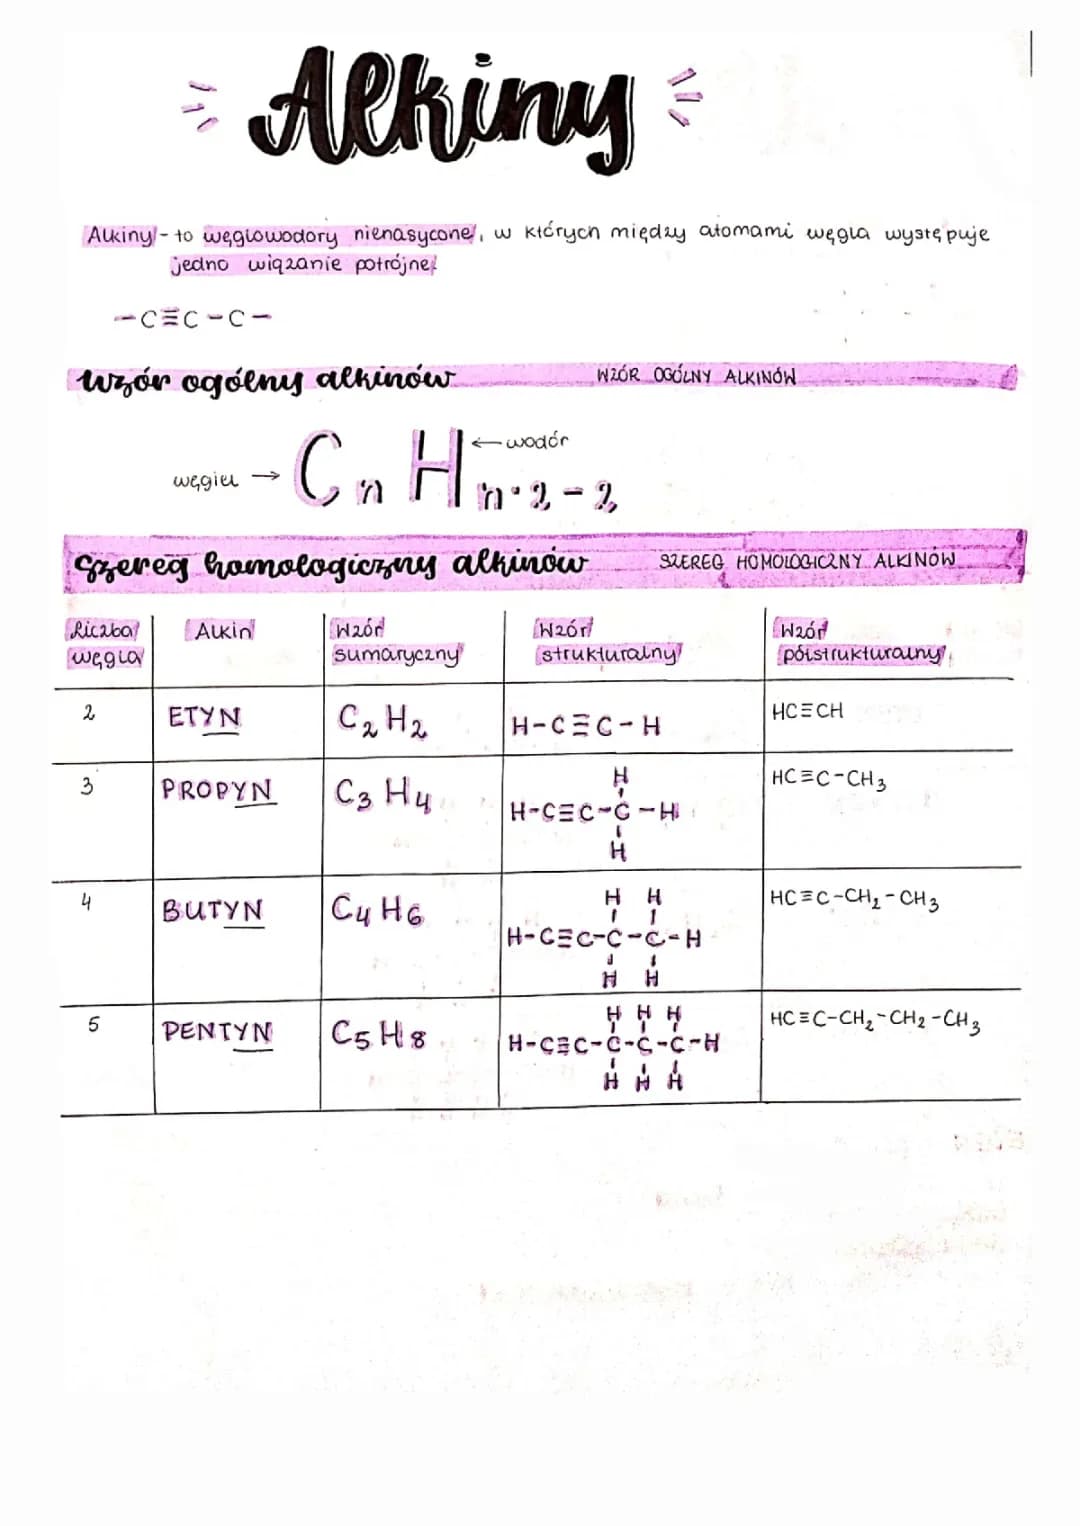 Alkiny
Alkiny - to węglowodory nienasycone, w których między atomami węgla występuje
jedno wiązanie potrójne.
-C≡C-C-
Wzór ogólny alkinów WZÓR OGÓLNY ALKINÓW
węgiel → CnHn·2-2 ← wodór
Szereg homologiczny alkinów SZEREG HOMOLOGICZNY ALKINÓW
Liczba węgla Alkin Wzór sumaryczny Wzór strukturalny Wzór półstrukturalny
2 ETYN C₂H₂ H-C≡C-H HC≡CH
H
3 PROPYN C₃H₄ H-C≡C-C-H HC≡C-CH₃
H
H H
4 BUTYN C₄H₆ H-C≡C-C-C-H HC≡C-CH₂-CH₃
H H
H H H
5 PENTYN C₅H₈ H-C≡C-C-C-C-H HC≡C-CH₂-CH₂-CH₃
H H H